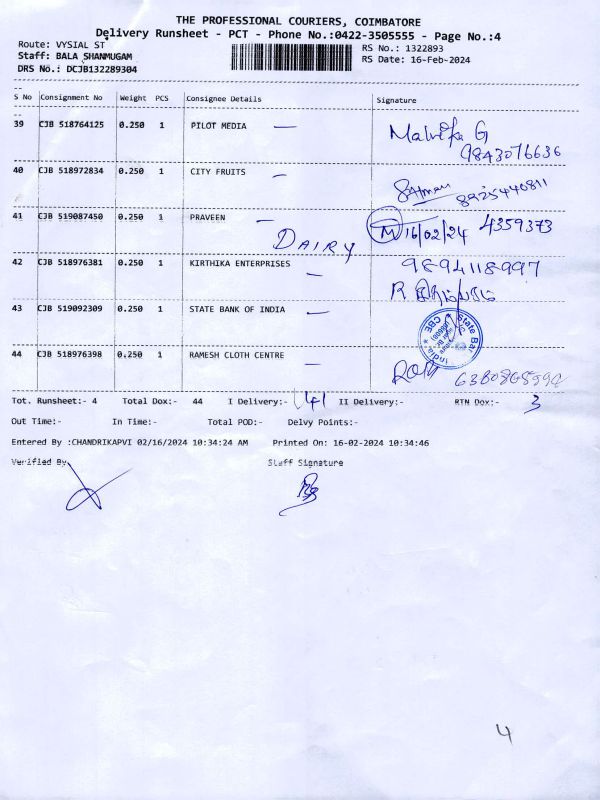 THE PROFESSIONAL COURIERS, COIMBATORE
Delivery Runsheet - PCT - Phone No.:0422-3505555 - Page No.:4
Route: VYSIAL ST
RS No.: 1322893
Staff: BALA SHANMUGAM
RS Date: 16-Feb-2024
DRS No.: DCJB132289304
S No Consignment No Weight PCS Consignee Details Signature
39 CJB 518764125 0.250 1 PILOT MEDIA
9843076636
40 CJB 518972834 0.250 1 CITY FRUITS
8925440811
41 CJB 519087450 0.250 1 PRAVEEN
M 16/02/24 4359373
DAIRY
42 CJB 518976381 0.250 1 KIRTHIKA ENTERPRISES 9894118997
43 CJB 519092309 0.250 1 STATE BANK OF INDIA
44 CJB 518976398 0.250 1 RAMESH CLOTH CENTRE
Tot. Runsheet:- 4 Total Dox:- 44 I Delivery:- 41 II Delivery:- RTN Dox:- 3
Out Time:- In Time:- Total POD:- Delvy Points:-
Entered By :CHANDRIKAPVI 02/16/2024 10:34:24 AM Printed On: 16-02-2024 10:34:46
Verified By
Staff Signature
4